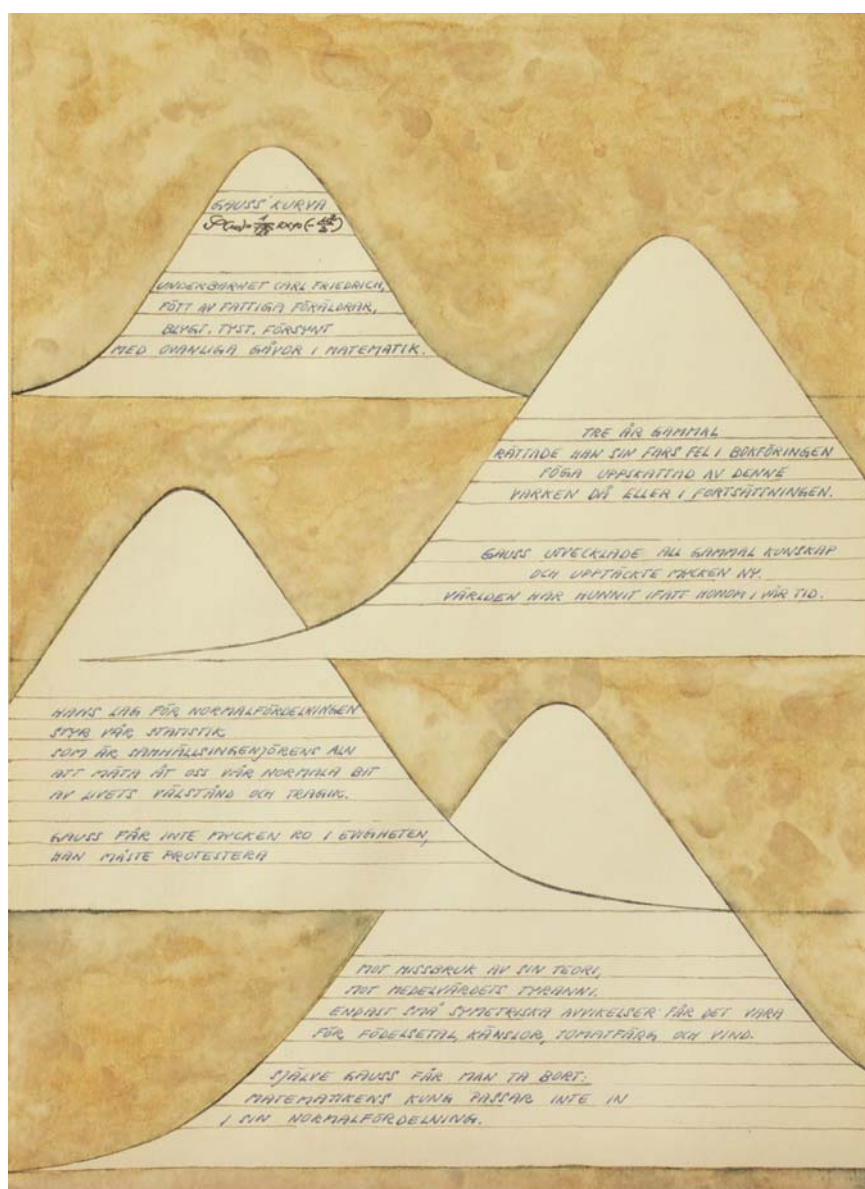 GAUSS' KURVA
φ(x)= 1/√2π exp(-x²/2)
UNDERBARNET CARL FRIEDRICH,
FÖTT AV FATTIGA FÖRÄLDRAR,
BLYGT, TYST, FÖRSYNT
MED OVANLIGA GÅVOR I MATEMATIK.
TRE ÅR GAMMAL
RÄTTADE HAN SIN FARS FEL I BOKFÖRINGEN
FÖGA UPPSKATTAD AV DENNE
VARKEN DÅ ELLER I FORTSÄTTNINGEN.
GAUSS UTVECKLADE ALL GAMMAL KUNSKAP
OCH UPPTÄCKTE MYCKEN NY.
VÄRLDEN HAR HUNNIT IFATT HONOM I VÅR TID.
HANS LAG FÖR NORMALFÖRDELNINGEN
STYR VÅR STATISTIK
SOM ÄR SAMHÄLLSINGENJÖRENS ALN
ATT MÄTA ÅT OSS VÅR NORMALA BIT
AV LIVETS VÄLSTÅND OCH TRAGIK.
GAUSS FÅR INTE MYCKEN RO I EVIGHETEN,
HAN MÅSTE PROTESTERA
MOT MISSBRUK AV SIN TEORI,
MOT MEDELVÄRDETS TYRANNI.
ENDAST SMÅ SYMETRISKA AVVIKELSER FÅR DET VARA
FÖR FÖDELSETAL, KÄNSLOR, TOMATFÄRG OCH VIND.
SJÄLVE GAUSS FÅR MAN TA BORT:
MATEMATIKENS KUNG PASSAR INTE IN
I SIN NORMALFÖRDELNING.